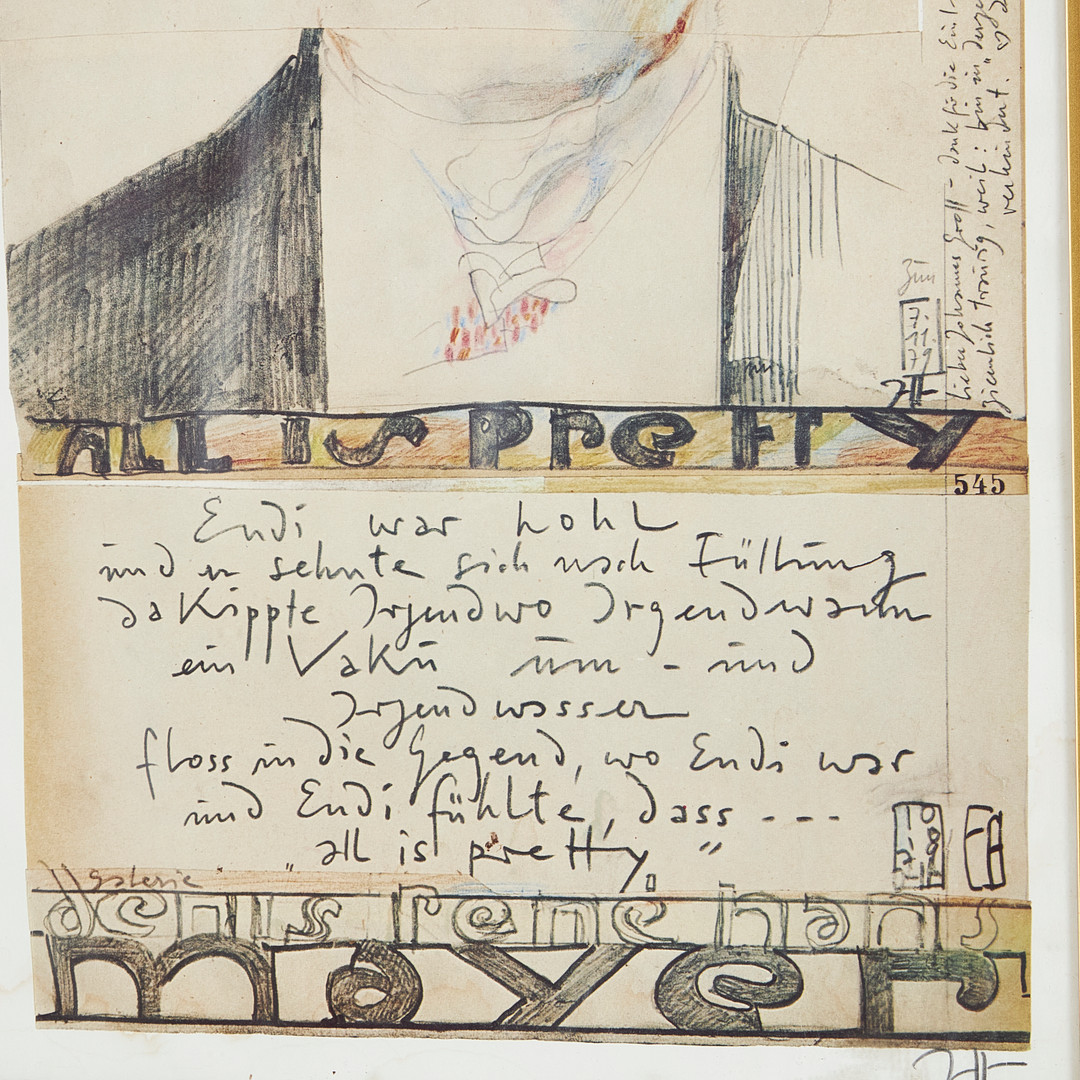 Lieber Johannes Gross - Dank für die
ziemlich traurig, weil: bin in
verhindert. "
Zum
7.
11.
71
ALL IS PreTTY
545
Endi war hohl
und er sehnte sich nach Füllung
da Kippte Irgendwo Irgendwann
ein Vakū ūm - und
Irgendwasser
floss in die Gegend, wo Endi war
und Endi fühlte, dass ---
"all is pretty"
Galerie
denis rene hans
mayer